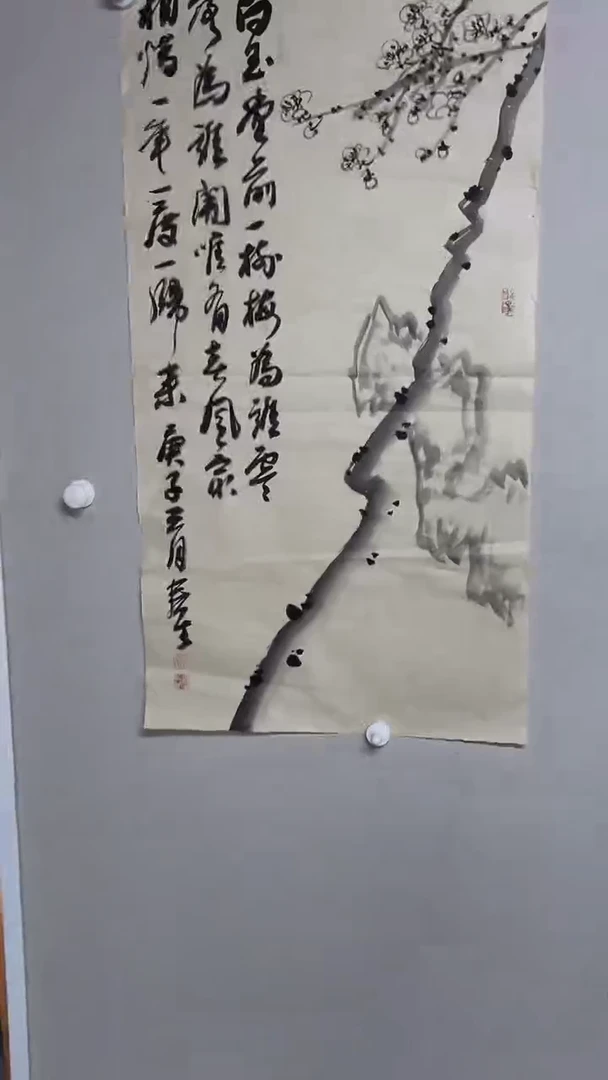 白玉堂前一树梅為誰零
落為誰開唯有春風最
相惜一年一度一歸来庚子三月